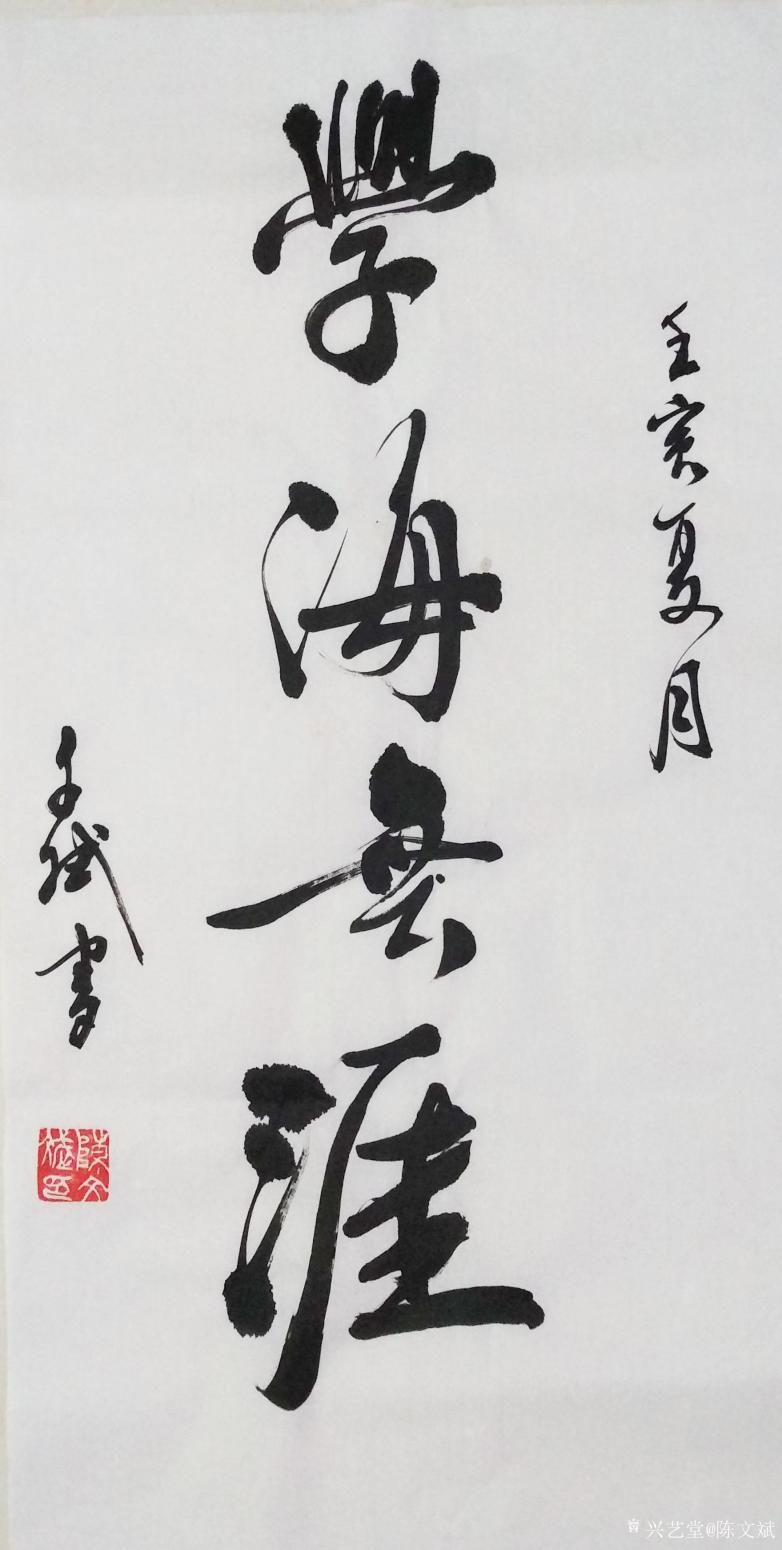 壬寅夏月
學海無涯
文斌書
陳文斌印
兴艺堂@陈文斌